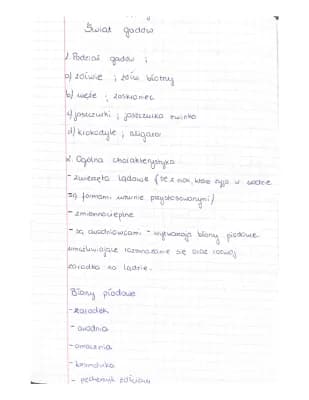 Świat gadów
1. Podział gadów :
a) żółwie ; żółw błotny
b) węże ; zaskroniec
c) jaszczurki ; jaszczurka zwinka
d) krokodyle ; aligator
2. Ogólna charakterystyka
- zwierzęta lądowe ( te z nich, które żyją w wodzie
są formami wtórnie przystosowanymi)
- zmiennocieplne
- są owodniowcami - wytwarzają błony płodowe
umożliwiające rozmnażanie się oraz rozwój
zarodka na lądzie.
Błony płodowe
- zarodek
- owodnia
- omocznia
- kosmówka
- pęcherzyk żółciowy